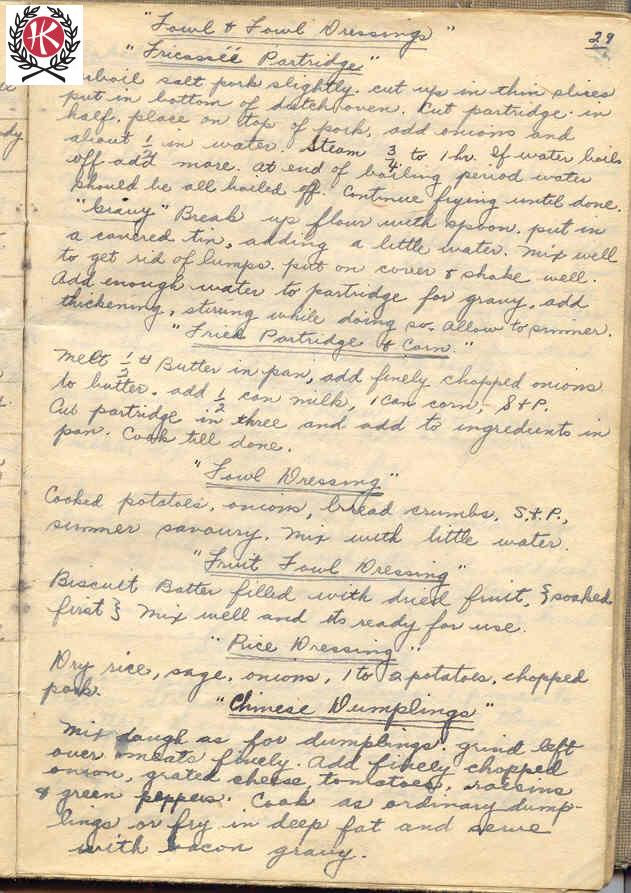 HK
"Fowl & Fowl Dressings"
29
"Fricassée Partridge"
Parboil salt pork slightly. cut up in thin slices
put in bottom of dutch oven. Cut partridge in
half. place on top of pork, add onions and
about 1/2 in water. Steam 3/4 to 1 hr. If water boils
off add more. At end of boiling period water
should be all boiled off. Continue frying until done.
"Gravy" Break up flour with spoon. put in
a covered tin, adding a little water. Mix well
to get rid of lumps. put on cover & shake well.
Add enough water to partridge for gravy. add
thickening, stirring while doing so. Allow to simmer.
"Fried Partridge & Corn."
Melt 1/2 # Butter in pan, add finely chopped onions
to butter. add 1/2 can milk, 1 can corn, S+P.
Cut partridge in three and add to ingredients in
pan. Cook till done.
"Fowl Dressing"
Cooked potatoes, onions, bread crumbs. S.+P.,
summer savoury. Mix with little water.
"Fruit Fowl Dressing"
Biscuit Batter filled with dried fruit, {soaked
first} Mix well and its ready for use.
"Rice Dressing"
Dry rice, sage, onions, 1 to 2 potatoes, chopped
pork.
"Chinese Dumplings"
Mix dough as for dumplings. grind left
over meats finely. Add finely chopped
onion, grated cheese, tomatoes, raisins
& green peppers. Cook as ordinary dump-
lings or fry in deep fat and serve
with bacon gravy.